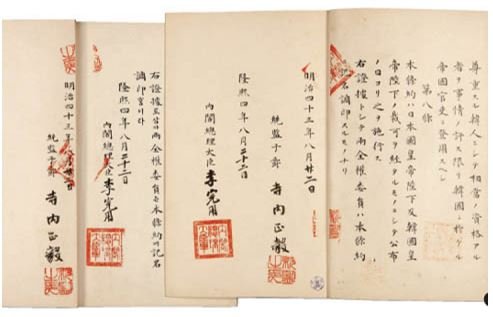 尊重スル韓人ニシテ相當ノ資格アル
者ヲ事情ノ許ス限リ韓國ニ於ケル
帝國官吏ニ登用スヘシ
第八條
本條約ハ日本國皇帝陛下及韓國皇
帝陛下ノ裁可ヲ經タルモノニシテ公布
ノ日ヨリ之ヲ施行ス
右證據トシテ兩全權委員ハ本條約
ニ記名調印スルモノナリ
明治四十三年八月廿二日
統監子爵 寺内正毅
隆熙四年八月二十二日
內閣總理大臣 李完用
右證據 兩全權委員 本條約 記名
調印
隆熙四年八月二十二日
內閣總理大臣 李完用
明治四十三年八月廿二日
統監子爵 寺内正毅